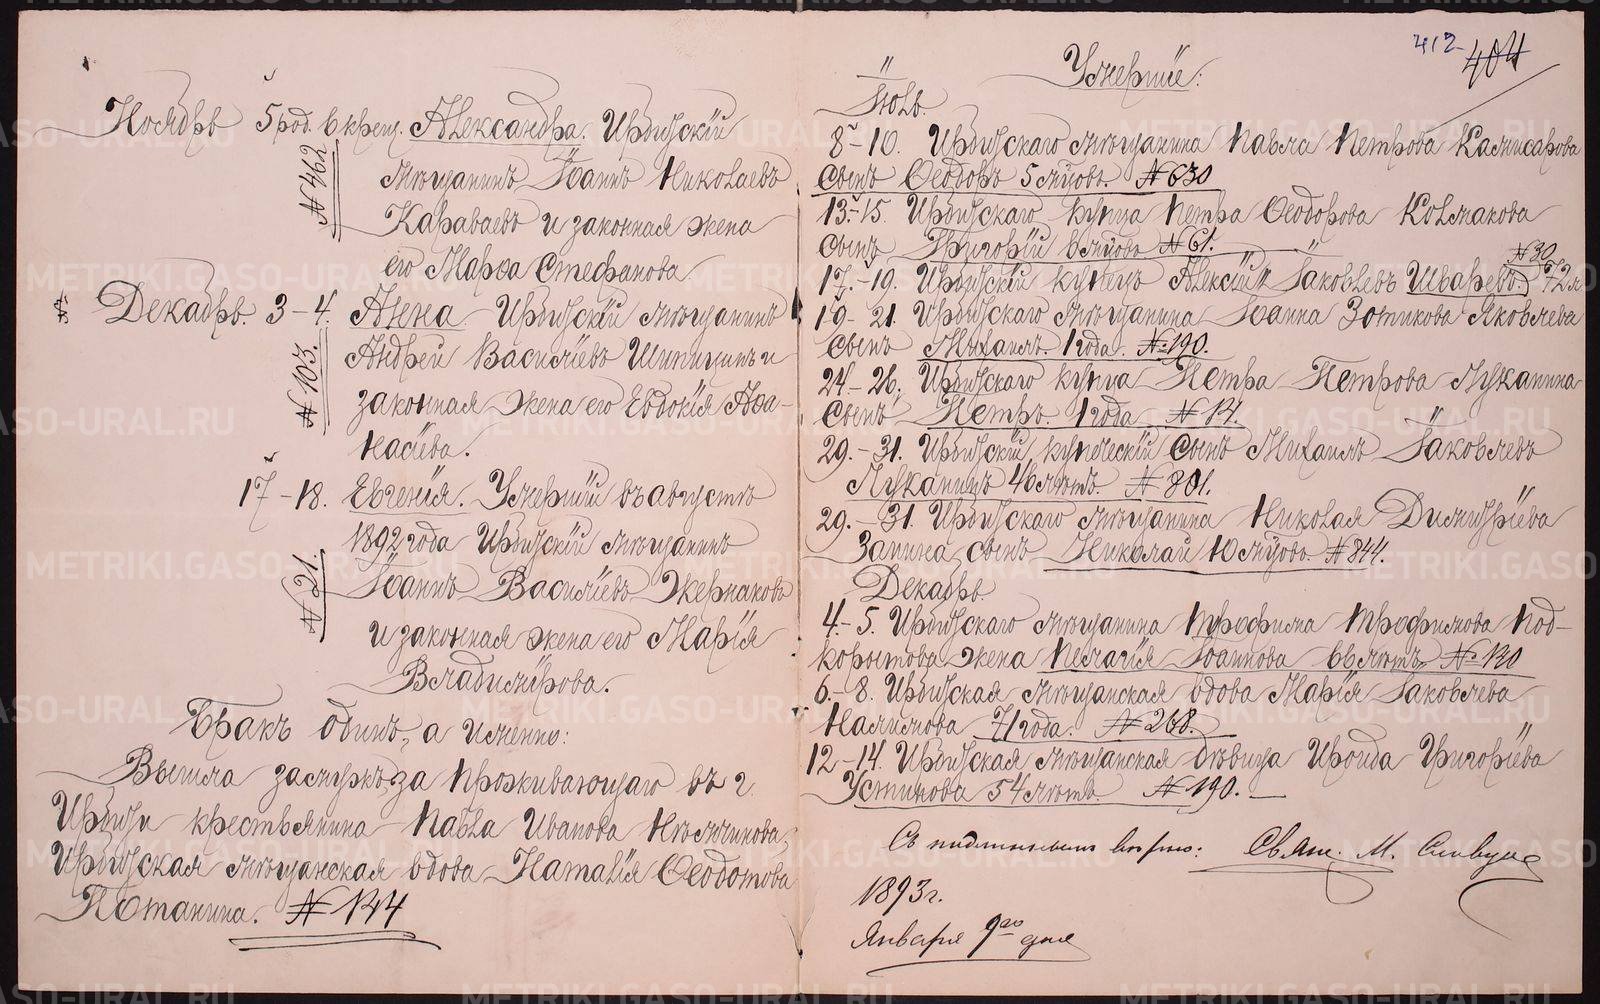 Ноябрь 5 род. 6 крещ. Александра. Ирбитскій
№ 462
мѣщанинъ Іоаннъ Николаевъ
Караваевъ и законная жена
его Марѳа Стефанова.
Декабрь. 3 – 4. Анна. Ирбитскій мѣщанинъ
№ 103.
Андрей Василіевъ Шипицинъ и
законная жена его Евдокія Аѳа-
насіева.
17 – 18. Евгенія. Умершій въ августѣ
1892 года Ирбитскій мѣщанинъ
№ 21.
Іоаннъ Василіевъ Жернаковъ
и законная жена его Марія
Владимірова.
Бракъ одинъ, а именно:
Вышла замужъ за проживающаго въ г.
Ирбити крестьянина Павла Иванова
Ирбитская мѣщанская вдова Наталія Ѳеодотова
Потанина. № 144
412 404
Умершіе:
Іюль.
8 – 10. Ирбитскаго мѣщанина Павла Петрова Камисарова
сынъ Ѳеодоръ 5 мѣцовъ. № 630
13 – 15. Ирбитскаго купца Петра Ѳеодорова Колмакова
сынъ Григорій 6 мѣцовъ № 61.
№ 30
17. – 19. Ирбитскій купецъ Алексій Іаковлевъ Шваревъ. 72 л
19 – 21. Ирбитскаго мѣщанина Іоанна Зотикова Яковлева
сынъ Михаилъ. 1 года. № 190.
24 – 26. Ирбитскаго купца Петра Петрова Луканина
сынъ Петръ. 1 года № 14.
29. – 31. Ирбитскій купеческій сынъ Михаилъ Іаковлевъ
Луканинъ 46 лѣтъ. № 801.
29. – 31. Ирбитскаго мѣщанина Николая Димитріева
Запина сынъ Николай 10 мѣцовъ № 844.
Декабрь.
4. – 5. Ирбитскаго мѣщанина Трофима Трофимова Под-
корытова жена Пелагія Іоаннова 66 лѣтъ № 130
6. – 8. Ирбитская мѣщанская вдова Марія Іаковлева
Налимова 71 года. № 268.
12 – 14. Ирбитская мѣщанская дѣвица Ироида Григоріева
Устинова 54 лѣтъ № 190.
Съ подлиннымъ вѣрно: Свящ. М.
1893 г.
Января 9го дня
METRIKI.GASO-URAL.RU